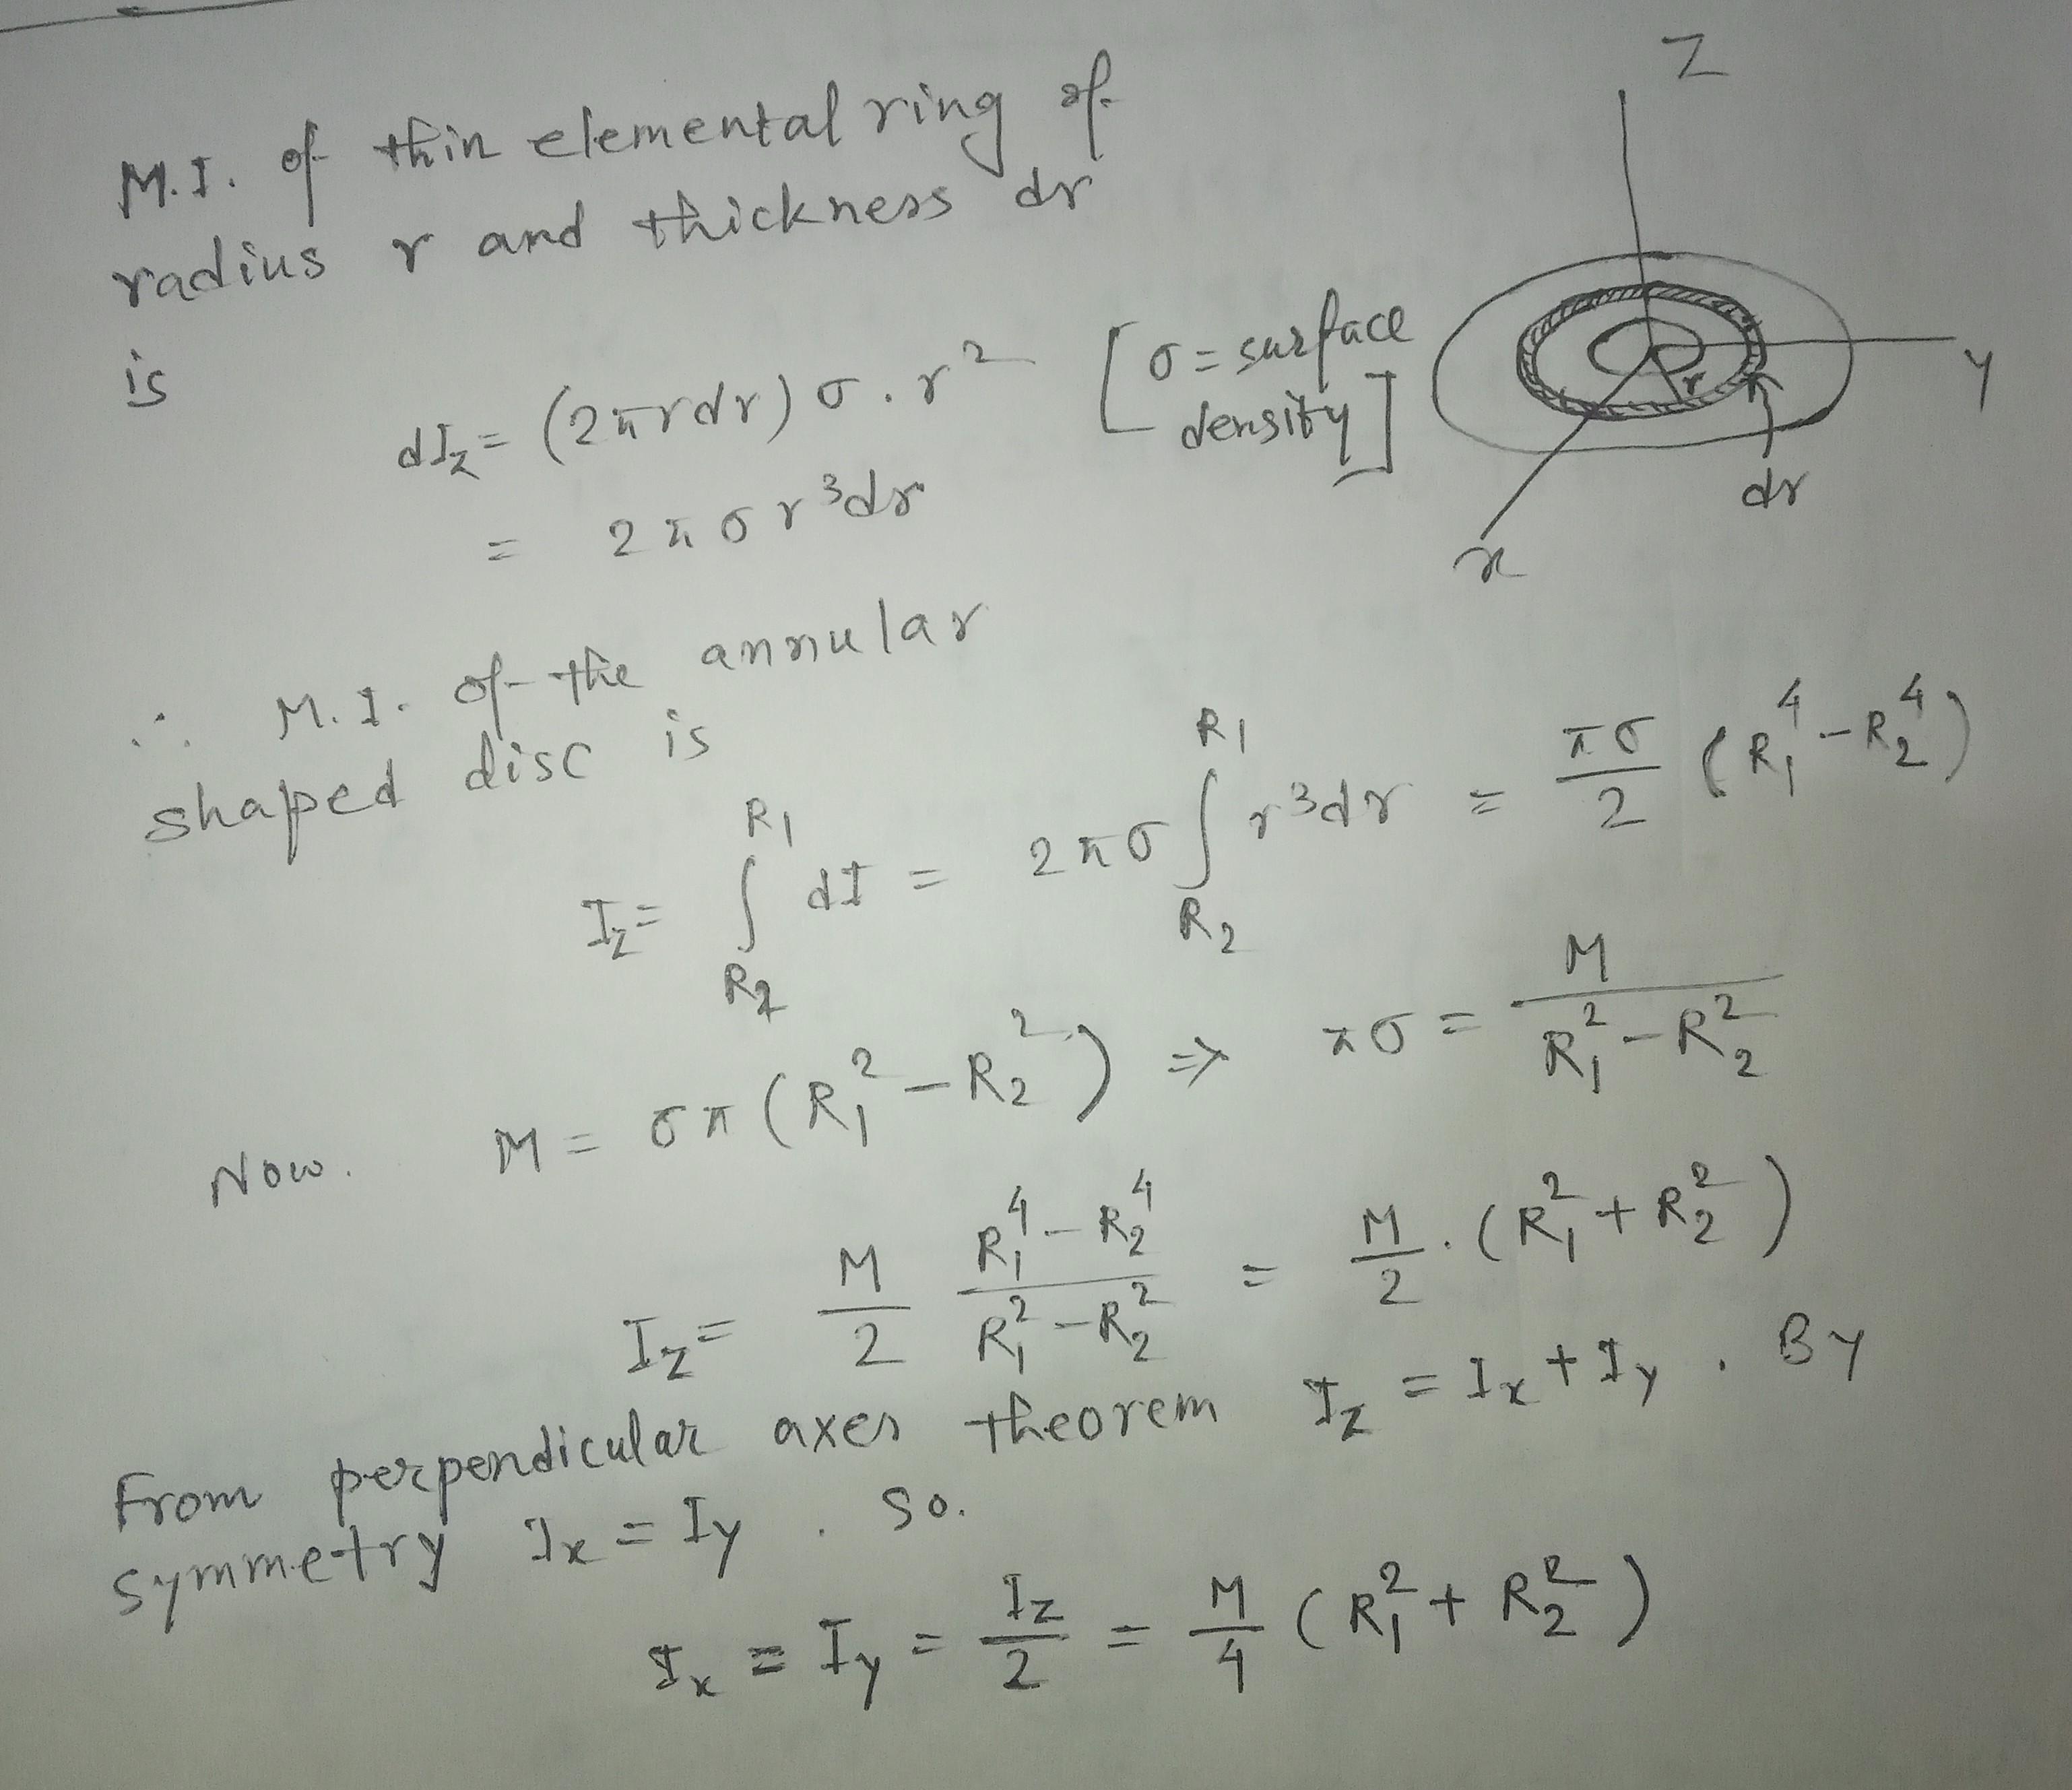 M.I. of thin elemental ring of
radius r and thickness dr
is
dI_z = (2πrdr) σ . r² [σ = surface
density]
= 2πσr³dr
Z
Y
r
dr
x
∴ M.I. of the annular
shaped disc is
I_z = ∫_{R₂}^{R₁} dI = 2πσ ∫_{R₂}^{R₁} r³dr = πσ/2 (R₁⁴ - R₂⁴)
Now. M = σπ (R₁² - R₂²) ⇒ πσ = M/(R₁² - R₂²)
I_z = M/2 (R₁⁴ - R₂⁴)/(R₁² - R₂²) = M/2 . (R₁² + R₂²)
From perpendicular axes theorem I_z = I_x + I_y . By
symmetry I_x = I_y . So.
I_x = I_y = I_z/2 = M/4 (R₁² + R₂²)